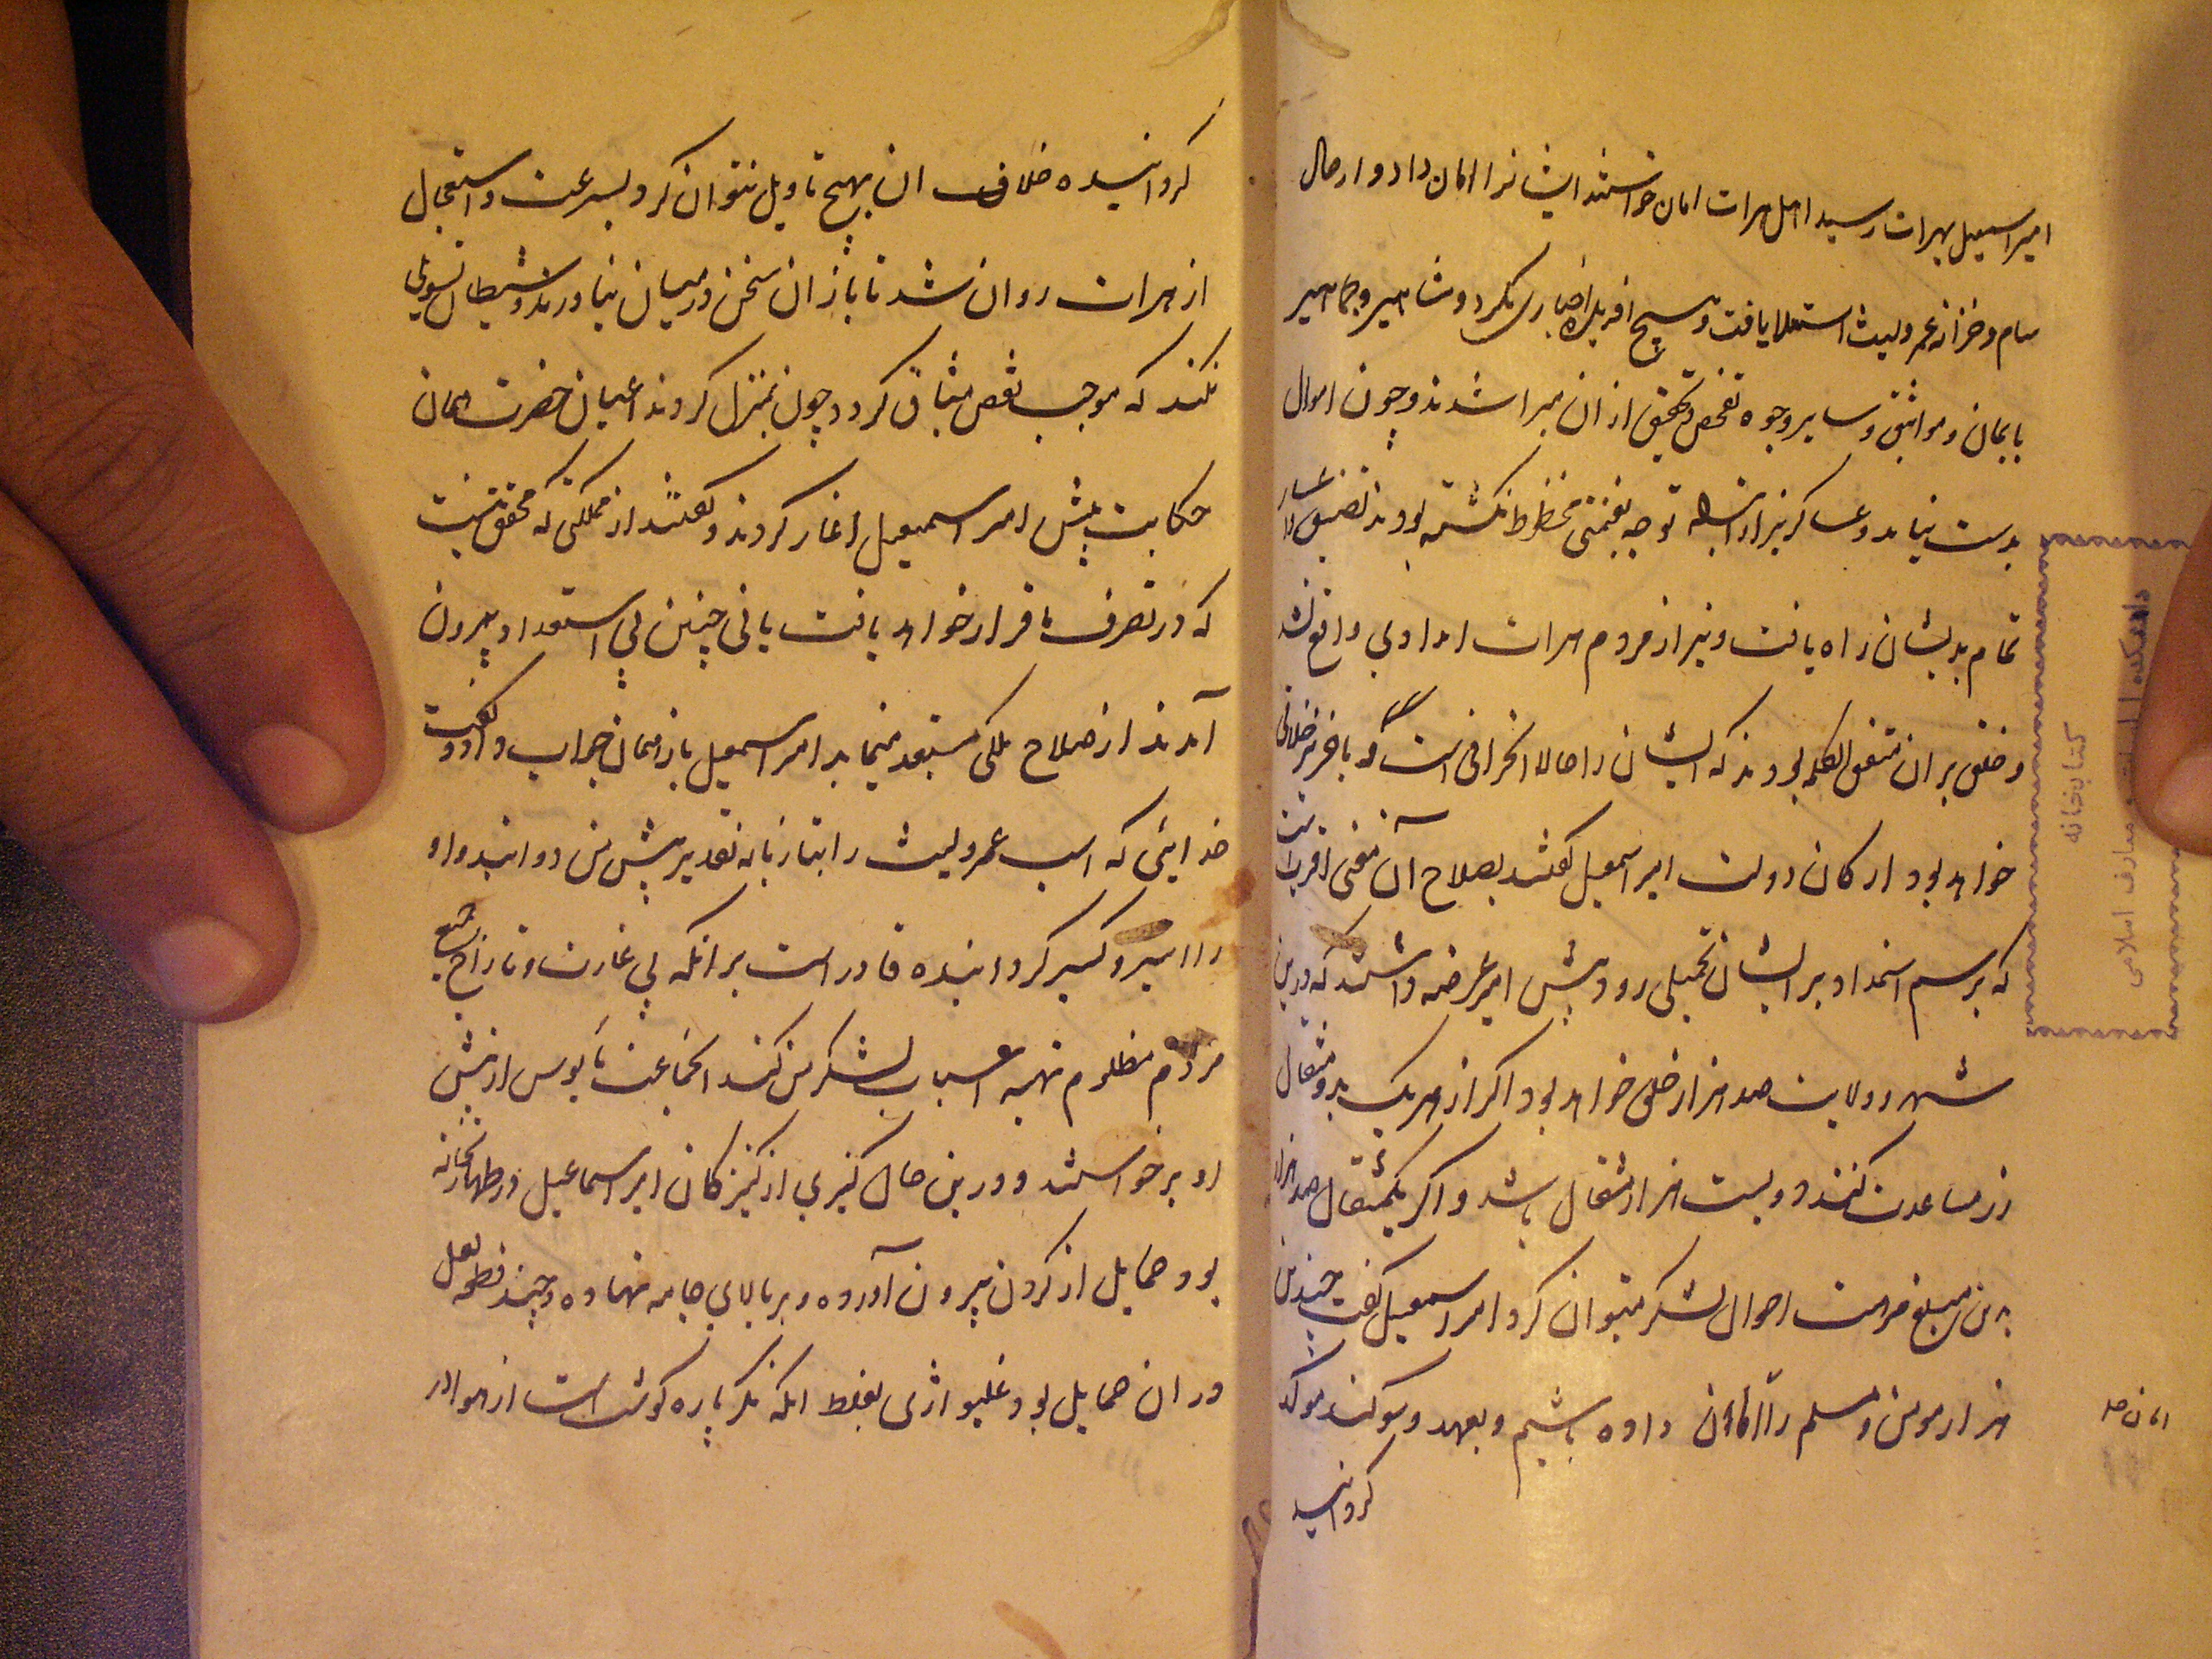 امیر اسمعیل بهرات رسید اهل هرات امان خواستند ایشانرا امان داد و ارحال
و خزانه عمرولیث استعلا یافت و هیچ افریده اخباری نکرد و مشاهیر و جماهیر
بایمان و مواثیق و سایر وجوه تفحص و تحقیق ازان مبرا شدند و چون اموال
بدست نیامد و عساکر نیز ازان توجه بغنیمتی محظوظ نکشته بودند تضییق
تمام بدیشان راه یافت و نیز از مردم هرات امدادی واقع نشد
و خلق بران متفق الکلمه بودند که ایشان را حالا انحرافی است که باخر
خواهد بود ارکان دولت امیر اسمعیل کفتند بصلاح آن معنی اقرب است
که برسم استمداد بر ایشان تحمیلی رود پیش امیر عرضه داشتند که درین
شهر و ولایت صد هزار خلق خواهد بود اکر از هر یک بدو مثقال
زر مساعدت کنند دویست هزار مثقال باشد و اکر یکمثقال صد هزار
بدین مبلغ مرمت احوال لشکر میتوان کرد امیر اسمعیل کفت چندین
هزار مومن و مسلم را امان داده باشیم و بعهد و سوکند موکد
کردانید
کردانیده خلاف ان بهیچ تاویل نتوان کرد بسرعت و استعجال
از هرات روان شد تا باز ان سخن در میان نیاورند و شیطان تسویلی
نکند که موجب نقض میثاق کردد چون بمنزل کردند اعیان حضرت همان
حکایت پیش امیر اسمعیل اغاز کردند و کفتند از مملکتی که محقق نیست
که در تصرف ما قرار خواهد یافت یا نی چنین بی استعداد بیرون
آمدند از صلاح ملکی مستبعد مینماید امیر اسمعیل باز همان جواب داد و کفت
خدائی که اسب عمرولیث را بتازیانه تقدیر پیش من دوانید و او
را اسیر و کسیر کردانیده قادر است برانکه بی غارت و تاراج جمع
مردم مظلوم تهیه اسباب لشکر من کند انجماعت مایوس از پیش
او برخواستند و درین حال کنیزی از کنیزکان امیر اسماعیل در طهارتخانه
بود حمایل از کردن بیرون آورده و بر بالای جامه نهاده و چند قطعه لعل
در ان حمایل بود غلیواژی بغلط انکه مکر پاره کوشت است از هوا در
کتابخانه
دانشکده الهیات و معارف اسلامی